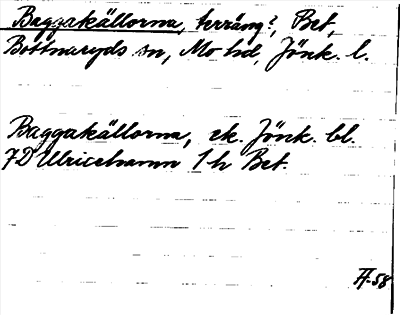 Baggakällorna, terräng?, Bet,
Bottnaryds sn, Mo hd, Jönk. l.
Baggakällorna, ek. Jönk. bl.
7D Ulricehamn 1 h Bet.
-58